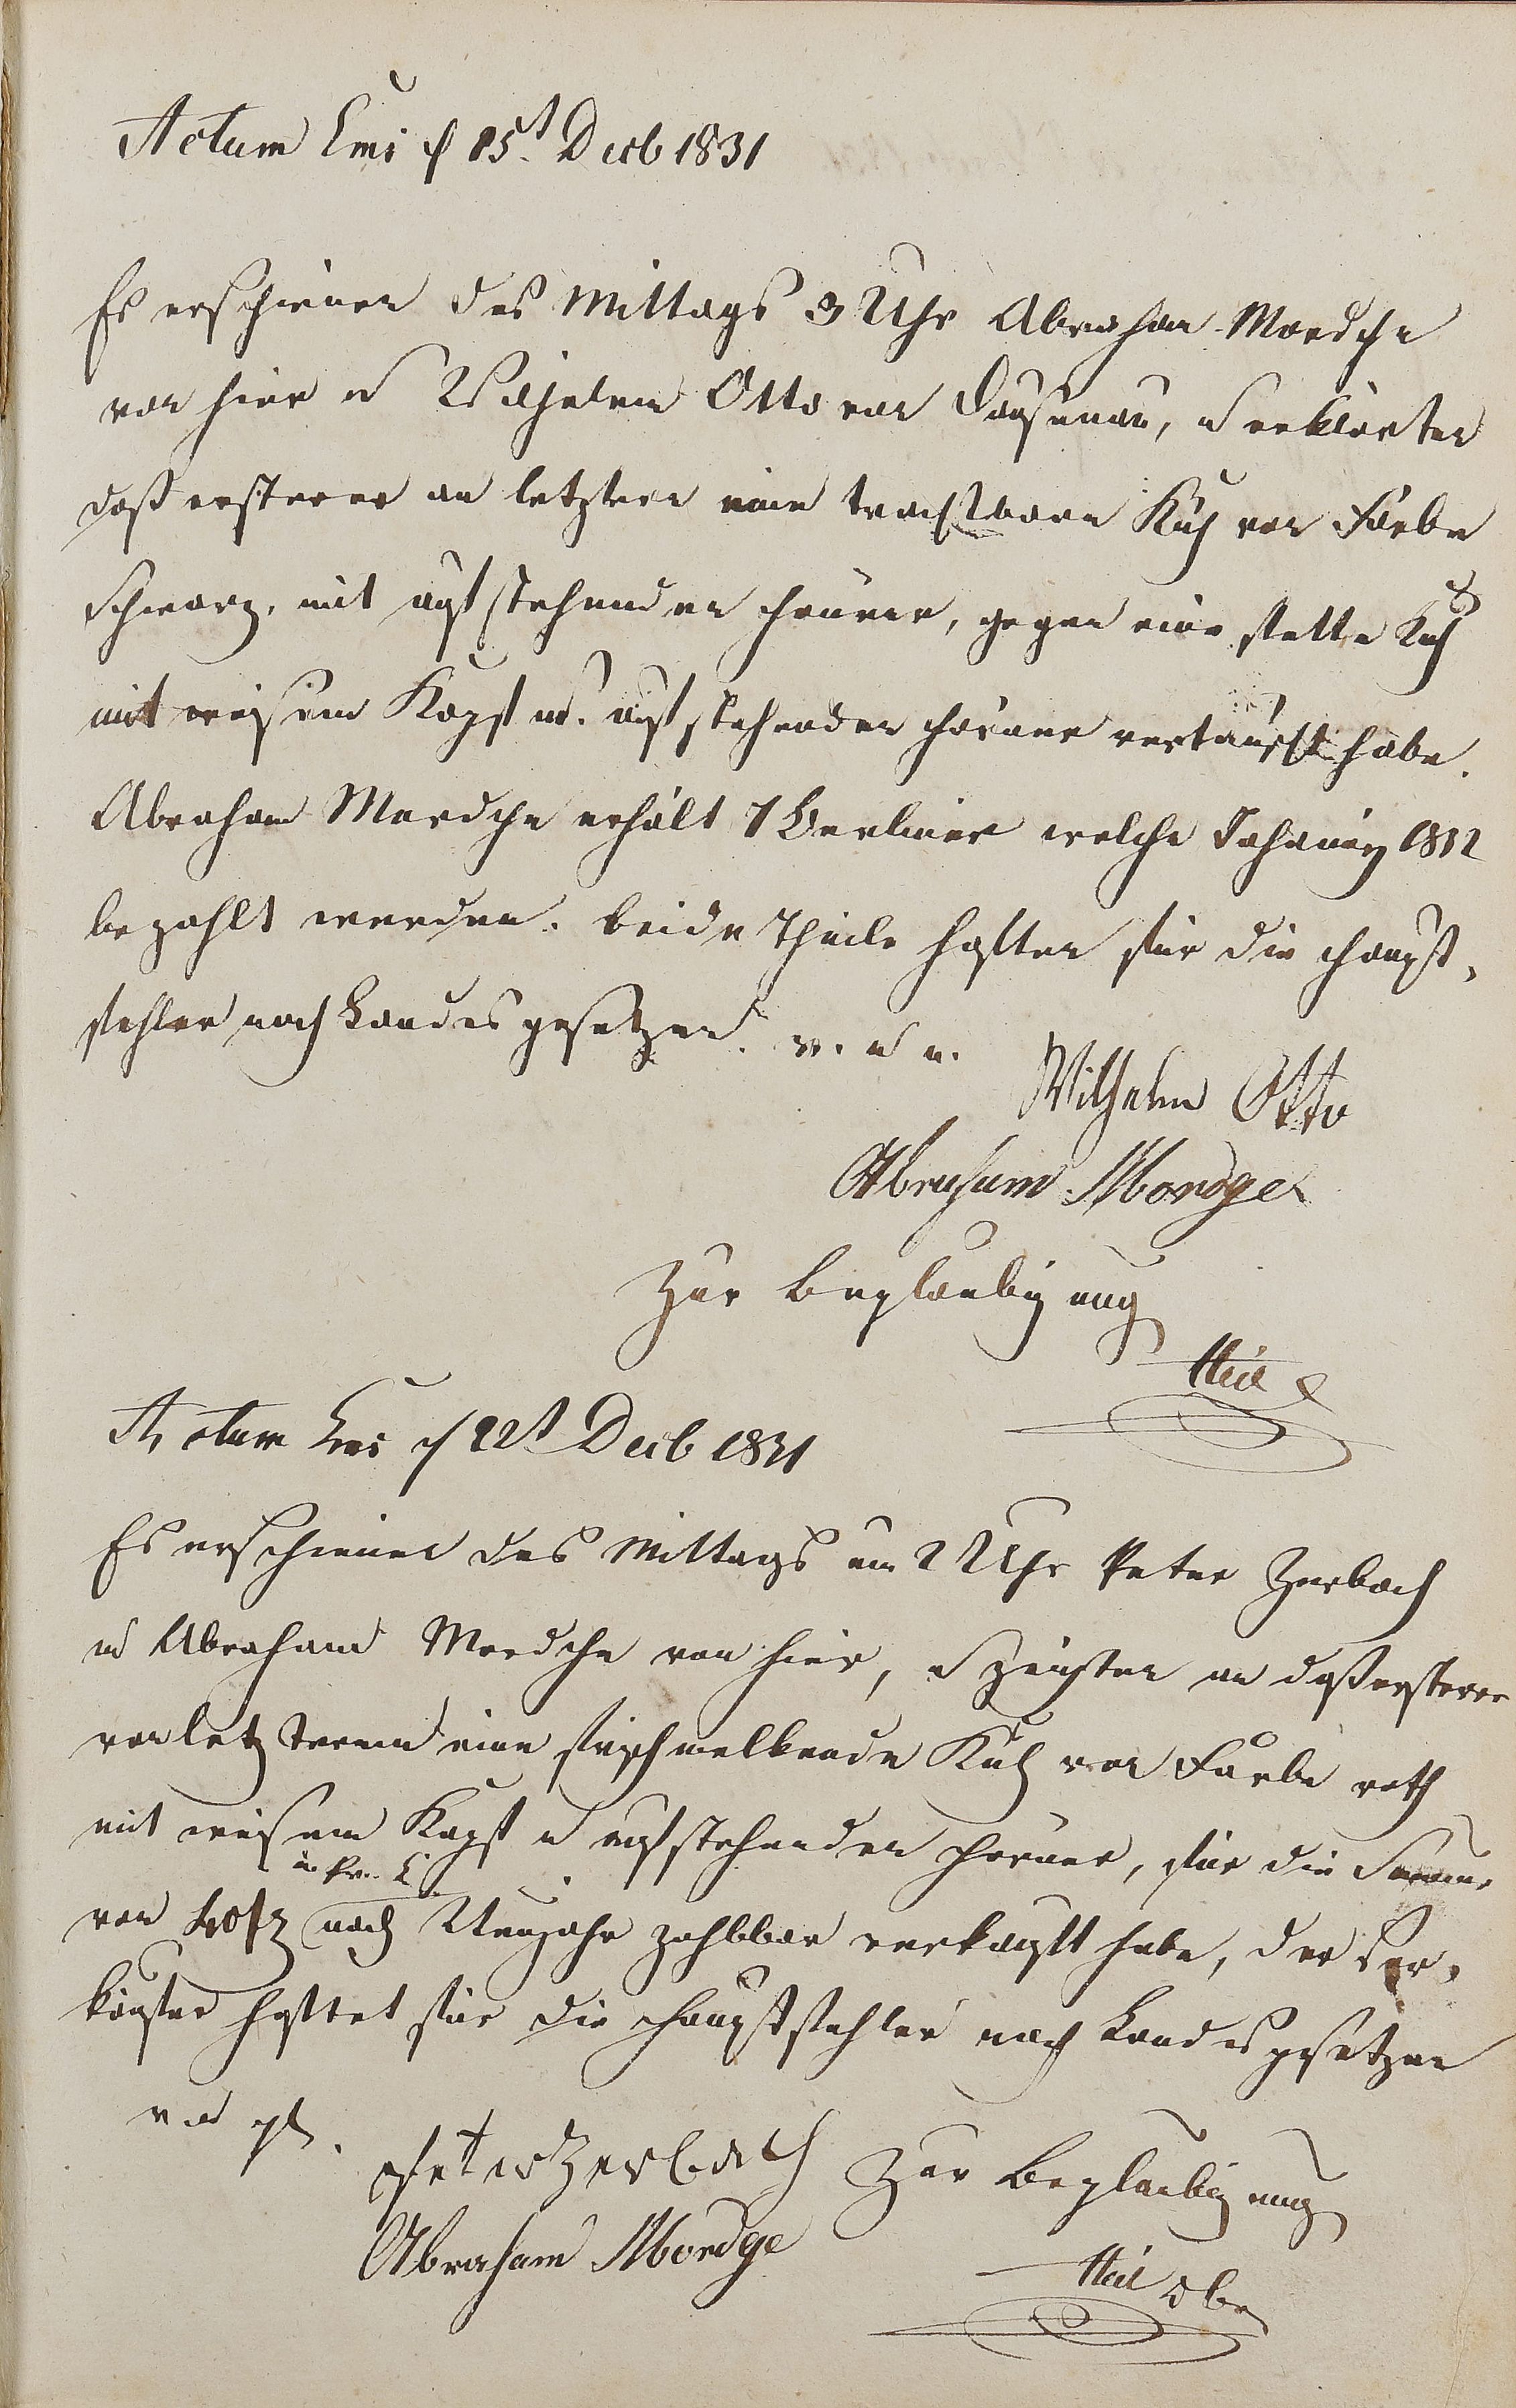 Actum Ems d 15t. Decb 1831
Es erschienen des Mittags 3 Uhr Abraham Mordche
von hier u Wilhelm Otto von Dausenau, u erklärten
daß ersterer an letztern eine trachtbare Kuh von Farbe
Schwarz, mit aufstehenden Hörner, gegen eine fette Kuh
mit weisem Kopf u. aufstehenden Hörner vertauscht habe.
Abraham Mordche erhält 7 Berliner welche Johanny 1832
bezahlt werden. beide Theile haften für die Haupt-
fehler nach Landesgesetzen. v. u u.
Wilhelm Otto
Abraham Mordge
Zur Beglaubigung
Actum Ems d 22t Decb 1831
Es erschienen des Mittags um 2 Uhr Peter Zerbach
u Abraham Mordche von hier, u zeigten an daß ersterer
von letzterem eine frischmelkende Kuh von Farbe roth
mit weisem Kopf u aufstehenden Hörner, für die Summe
von 40 f nach Neujahr zahlbar verkauft habe, der Ver-
käufer haftet für die Hauptfehler nach Landesgesetzen
v u g.
Peter Zerbach Zur Beglaubigung
Abraham Mordge